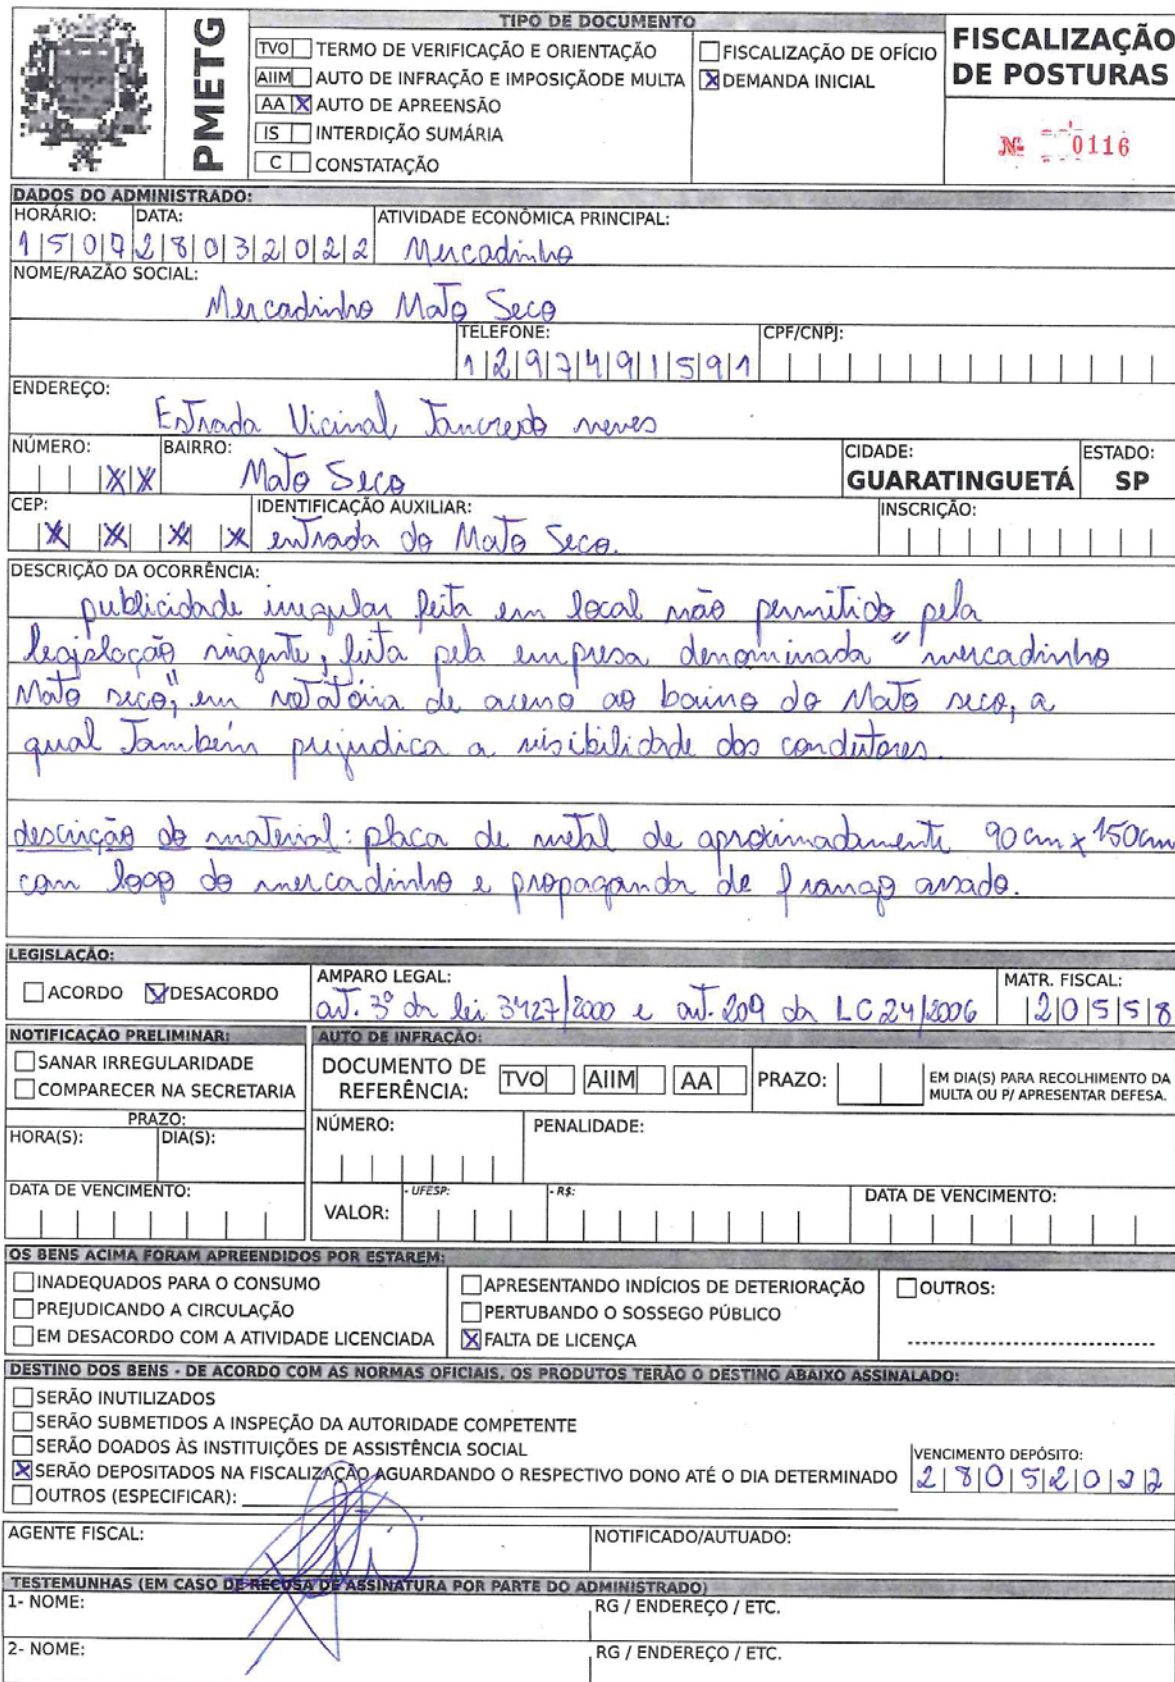 PMETG
TIPO DE DOCUMENTO
TVO TERMO DE VERIFICAÇÃO E ORIENTAÇÃO
AIIM AUTO DE INFRAÇÃO E IMPOSIÇÃODE MULTA
AA X AUTO DE APREENSÃO
IS INTERDIÇÃO SUMÁRIA
C CONSTATAÇÃO
FISCALIZAÇÃO DE OFÍCIO
X DEMANDA INICIAL
FISCALIZAÇÃO
DE POSTURAS
Nº 0116
DADOS DO ADMINISTRADO:
HORÁRIO: DATA: ATIVIDADE ECONÔMICA PRINCIPAL:
1507 28032022 Mercadinho
NOME/RAZÃO SOCIAL:
Mercadinho Mato Seco
TELEFONE: CPF/CNPJ:
12974911591
ENDEREÇO:
Estrada Vicinal Tancredo neves
NÚMERO: BAIRRO: CIDADE: ESTADO:
XX Mato Seco GUARATINGUETÁ SP
CEP: IDENTIFICAÇÃO AUXILIAR: INSCRIÇÃO:
X X X X entrada do Mato Seco.
DESCRIÇÃO DA OCORRÊNCIA:
publicidade irregular feita em local não permitido pela
legislação vigente, feita pela empresa denominada "mercadinho
Mato seco", em rotatória de acesso ao bairro do Mato seco, a
qual também prejudica a visibilidade dos condutores.
descrição do material: placa de metal de aproximadamente 90cm x 150cm
com logo do mercadinho e propaganda de frango assado.
LEGISLAÇÃO:
ACORDO X DESACORDO
AMPARO LEGAL: MATR. FISCAL:
art. 3º da lei 3427/2000 e art. 209 da LC 24/2006 20558
NOTIFICAÇÃO PRELIMINAR:
SANAR IRREGULARIDADE
COMPARECER NA SECRETARIA
PRAZO:
HORA(S): DIA(S):
DATA DE VENCIMENTO:
AUTO DE INFRAÇÃO:
DOCUMENTO DE
REFERÊNCIA: TVO AIIM AA PRAZO: EM DIA(S) PARA RECOLHIMENTO DA
MULTA OU P/ APRESENTAR DEFESA.
NÚMERO: PENALIDADE:
VALOR: - UFESP: - R$: DATA DE VENCIMENTO:
OS BENS ACIMA FORAM APREENDIDOS POR ESTAREM:
INADEQUADOS PARA O CONSUMO
PREJUDICANDO A CIRCULAÇÃO
EM DESACORDO COM A ATIVIDADE LICENCIADA
APRESENTANDO INDÍCIOS DE DETERIORAÇÃO
PERTUBANDO O SOSSEGO PÚBLICO
X FALTA DE LICENÇA
OUTROS:
DESTINO DOS BENS - DE ACORDO COM AS NORMAS OFICIAIS, OS PRODUTOS TERÃO O DESTINO ABAIXO ASSINALADO:
SERÃO INUTILIZADOS
SERÃO SUBMETIDOS A INSPEÇÃO DA AUTORIDADE COMPETENTE
SERÃO DOADOS ÀS INSTITUIÇÕES DE ASSISTÊNCIA SOCIAL
X SERÃO DEPOSITADOS NA FISCALIZAÇÃO AGUARDANDO O RESPECTIVO DONO ATÉ O DIA DETERMINADO
OUTROS (ESPECIFICAR):
VENCIMENTO DEPÓSITO:
28052022
AGENTE FISCAL: NOTIFICADO/AUTUADO:
TESTEMUNHAS (EM CASO DE RECUSA DE ASSINATURA POR PARTE DO ADMINISTRADO)
1- NOME: RG / ENDEREÇO / ETC.
2- NOME: RG / ENDEREÇO / ETC.